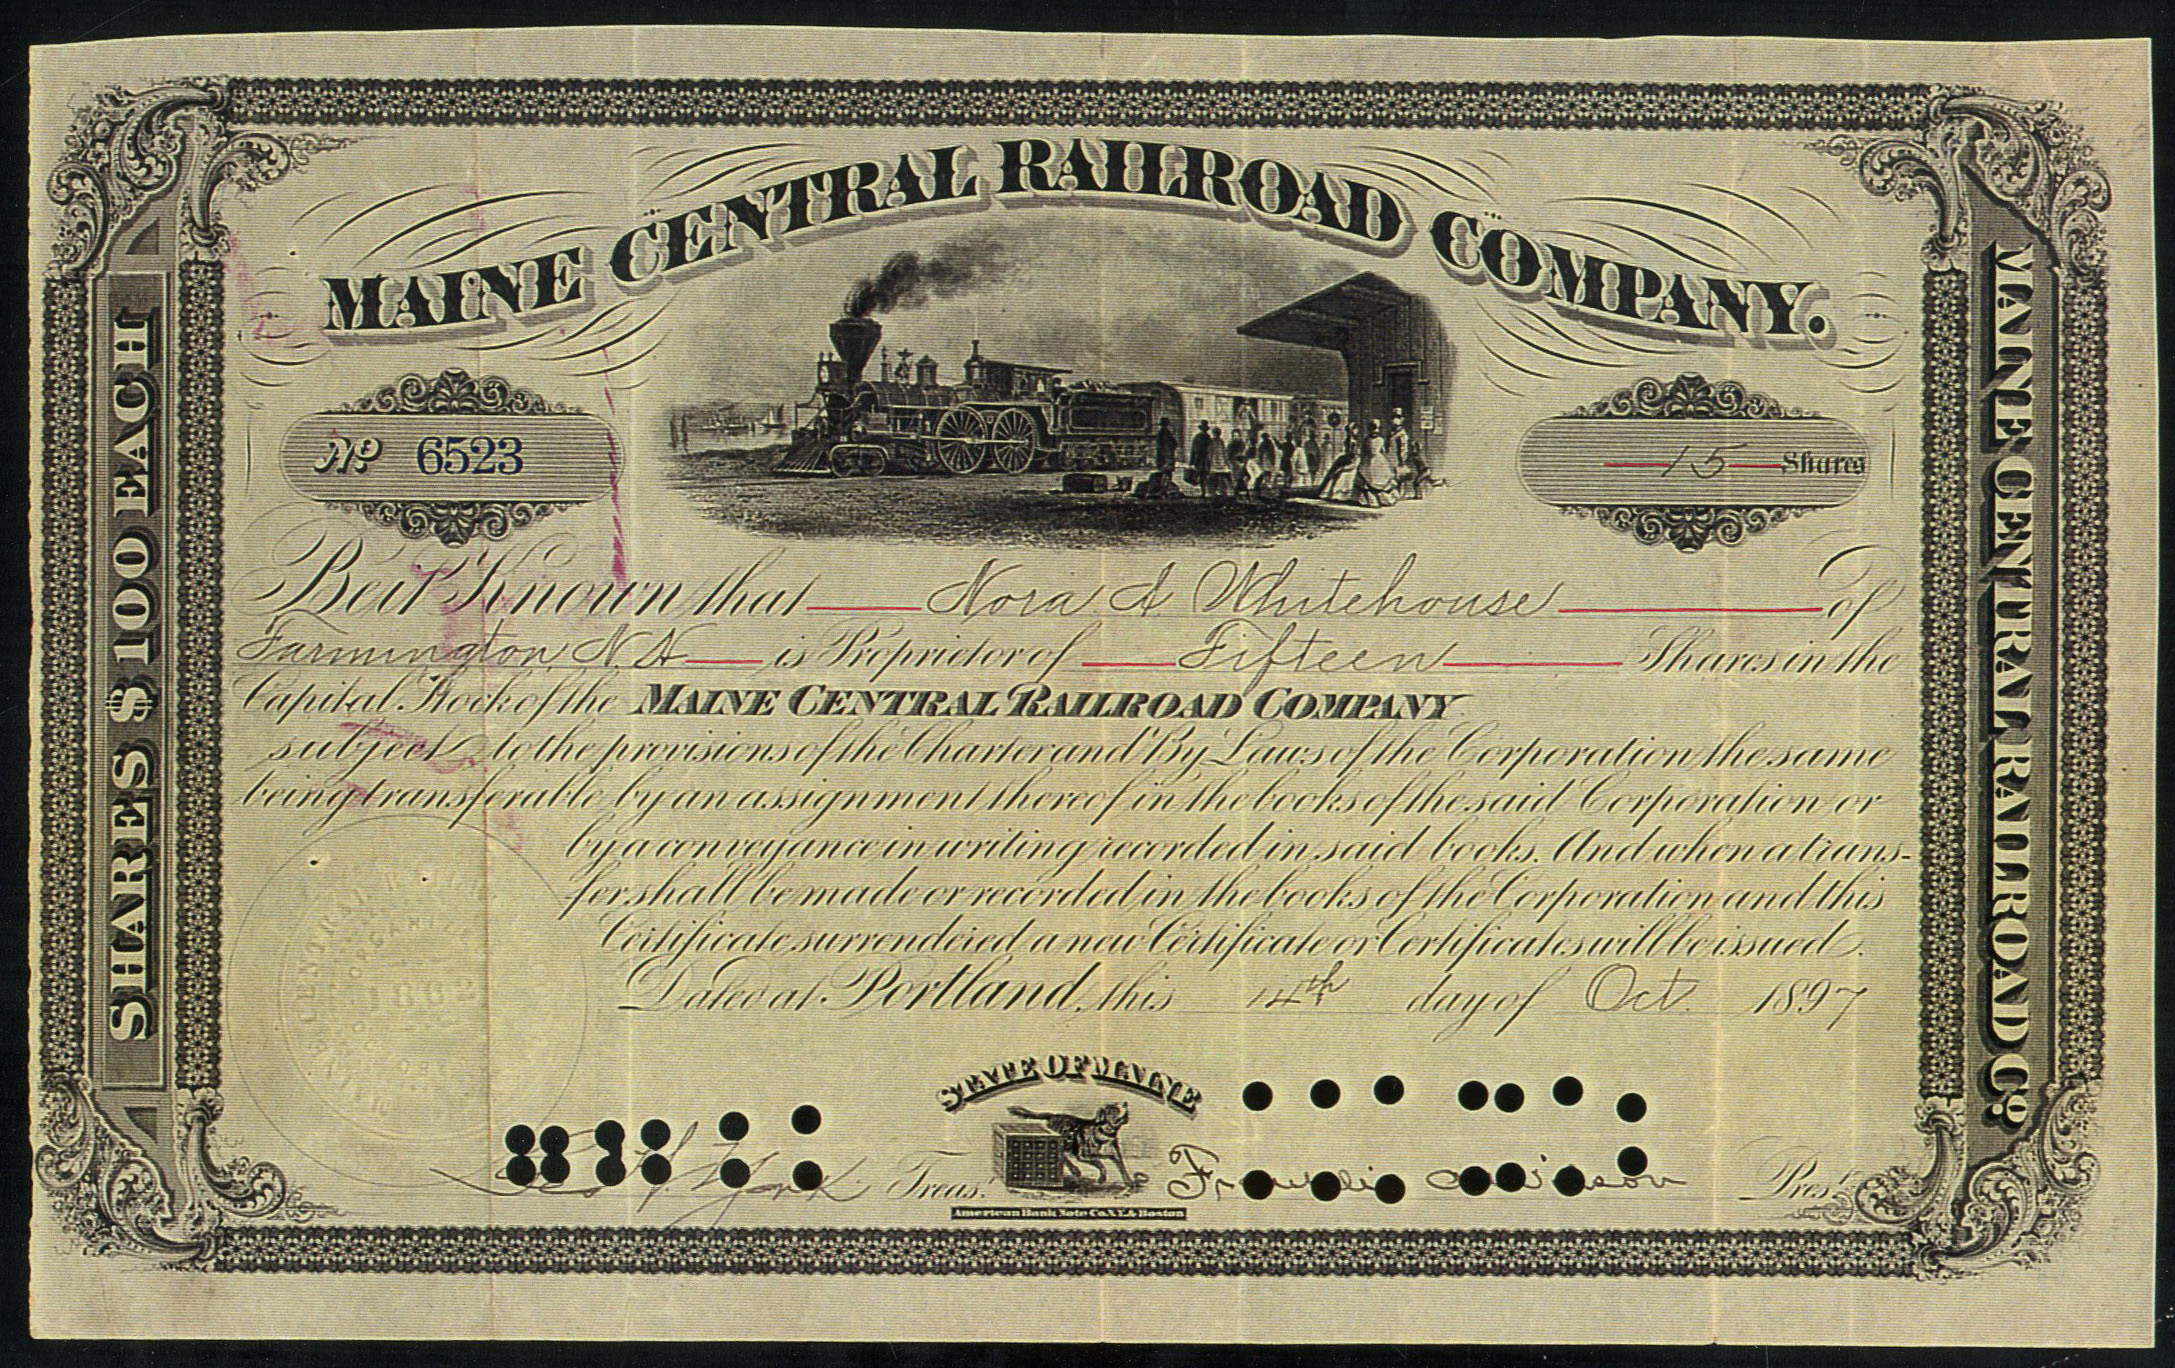 MAINE CENTRAL RAILROAD COMPANY.
SHARES $100 EACH
MAINE CENTRAL RAILROAD CO.
No 6523
15 Shares
Be it Known that Nora A Whitehouse of
Farmington, N.H. is Proprietor of Fifteen Shares in the
Capital Stock of the MAINE CENTRAL RAILROAD COMPANY
subject to the provisions of the Charter and By Laws of the Corporation, the same
being transferable by an assignment thereof in the books of the said Corporation or
by a conveyance in writing recorded in said books. And when a trans-
fer shall be made or recorded in the books of the Corporation and this
Certificate surrendered a new Certificate or Certificates will be issued.
Dated at Portland, this 14th day of Oct. 1897
MAINE CENTRAL
ORGANIZED
1862
STATE OF MAINE
York Treas.
Pres.
American Bank Note Co. N.Y. & Boston